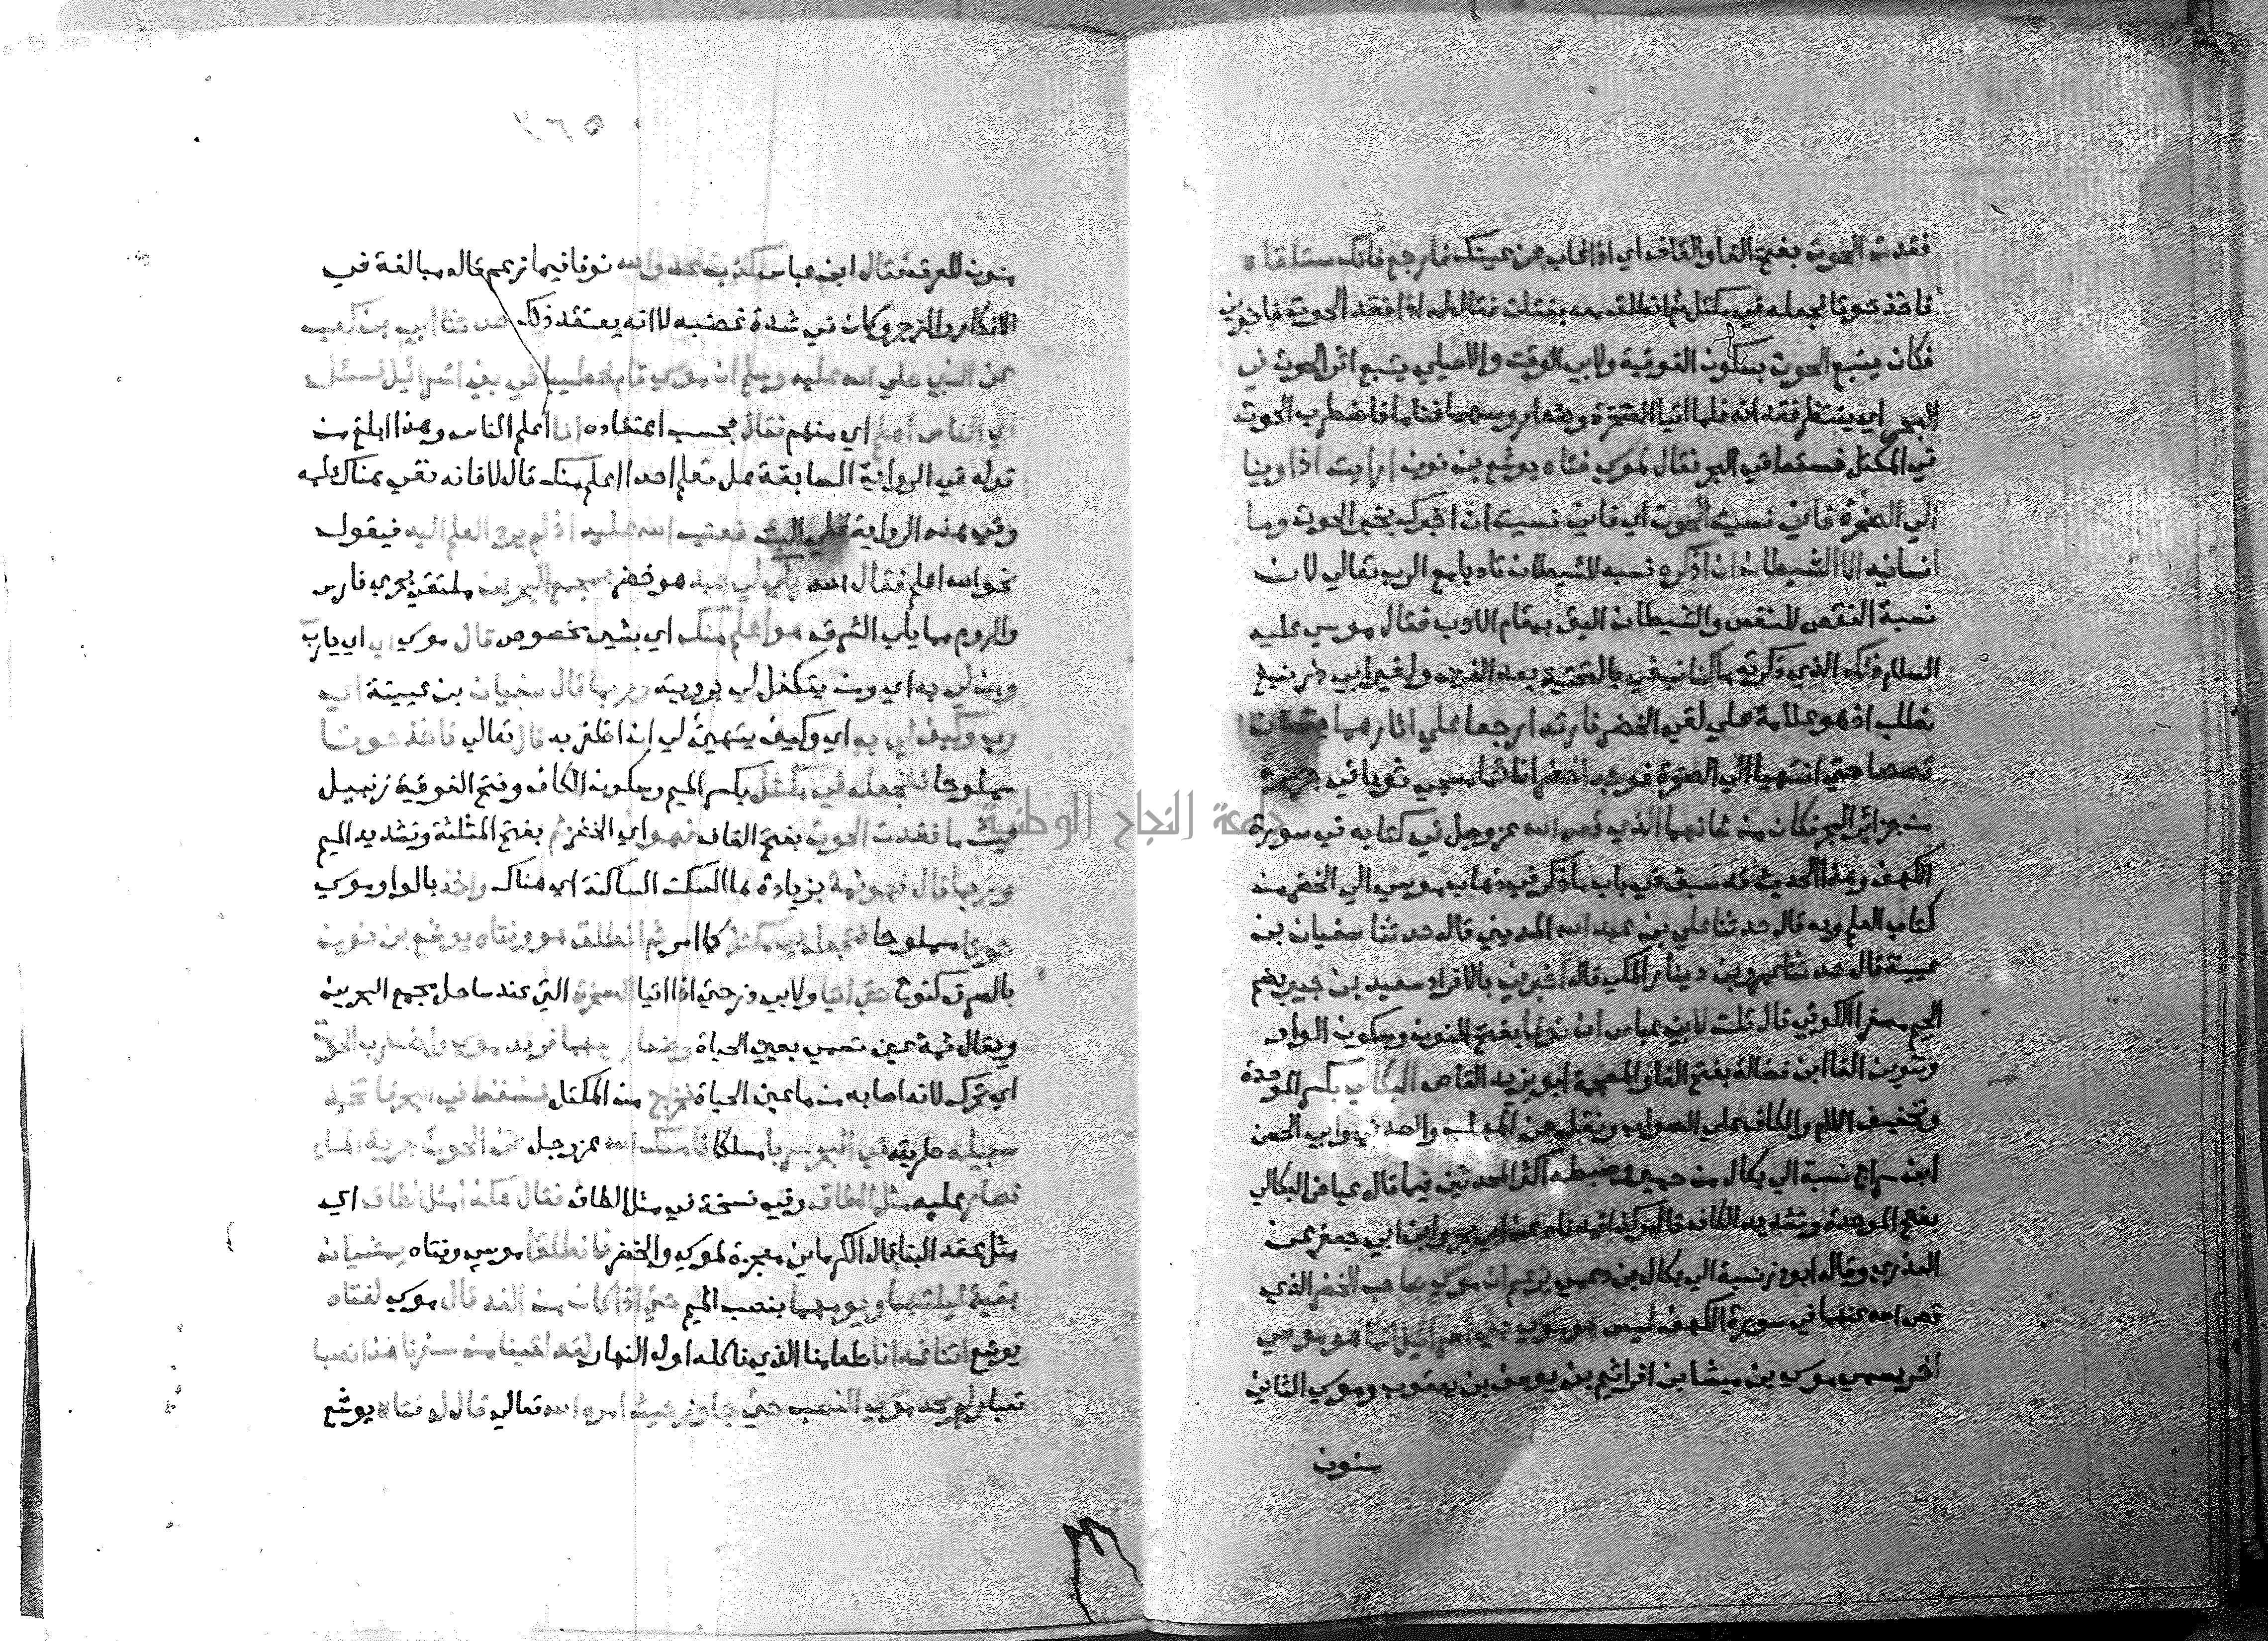 فقدت الحوت بفتح الفا والقاف اي اذا غاب عن عينك فارجع فانك ستلقاه
فاخذ حوتا فجعله في مكتل ثم انطلق معه بفتاه فقال له اذا فقدت الحوت فاخبرني
فكان يتبع الحوت بسكون الفوقية ولابي الوقت والاصيلي يتبع اثر الحوت في
البحر اي ينتظر فقدانه فلما اتيا الصخرة وضعا روسهما فناما فاضطرب الحوت
في المكتل فسقط في البحر فقال لموسي فتاه يوشع بن نون ارايت اذ اوينا
الي الصخرة فاني نسيت الحوت اي فاني نسيت ان اخبرك بخبر الحوت وما
انسانيه الا الشيطان ان اذكره نسبه للشيطان تادبا مع الرب تعالي لان
نسبة النقص للنفس والشيطان اليق بمقام الادب فقال موسي عليه
السلام ذلك الذي ذكرته ما كنا نبغي بالتحتية بعد الغين ولغير ابي ذر نبغ
نطلب اذ هو علامة علي لقي الخضر فارتدا رجعا علي اثارهما يقصان
قصصا حتي انتهيا الي الصخرة فوجدا خضرا نائما مسجي ثوبا في جزيرة
من جزائر البحر فكان من شانهما الذي قص الله عز وجل في كتابه في سورة
الكهف وهذا الحديث قد سبق في باب ما ذكر في ذهاب موسي الي الخضر من
كتاب العلم وبه قال حدثنا علي بن عبد الله المديني قال حدثنا سفيان بن
عيينة قال حدثنا عمرو بن دينار المكي قال اخبرني بالافراد سعيد بن جبير بضم
الجيم مصغرا الكوفي قال قلت لابن عباس ان نوفا بفتح النون وسكون الواو
وتنوين الفا ابن فضالة بفتح الفا والمعجمة ابو يزيد القاص البكالي بكسر الموحدة
وتخفيف اللام والكاف علي الصواب ونقل عن المهلب والصدفي وابي الحسن
ابن سراج نسبة الي بكال من حمير وضبطه اكثر المحدثين فيما قال عياض البكالي
بفتح الموحدة وتشديد الكاف قال وكذا قيدناه عن ابي بحر وابن ابي جعفر عن
العذري وقال ابو ذر نسبة الي بكال بن دعمي يزعم ان موسي صاحب الخضر الذي
قص الله عنهما في سورة الكهف ليس هو موسي بني اسرائيل انما هو موسي
اخر يسمي موسي بن ميشا بن افراثيم بن يوسف بن يعقوب وموسي الثاني
منون
جامعة النجاح الوطنية
منون للفرق فقال ابن عباس كذب عدو الله نوفا فيما زعم قاله مبالغة في
الانكار والزجر وكان في شدة غضبه لا انه يعتقد ذلك حدثنا ابي بن كعب
عن النبي صلي الله عليه وسلم ان موسي قام خطيبا في بني اسرائيل فسئل
اي الناس اعلم اي منهم فقال بحسب اعتقاده انا اعلم الناس وهذا ابلغ من
قوله في الرواية السابقة هل تعلم احدا اعلم منك قال لا فانه نفي هناك علمه
وفي هذه الرواية علي البت فعتب الله عليه اذ لم يرد العلم اليه فيقول
نحو الله اعلم فقال الله بلي لي عبد هو خضر بمجمع البحرين ملتقي بحري فارس
والروم مما يلي الشرق هو اعلم منك اي بشي مخصوص قال موسي اي اي يارب
ومن لي به اي ومن يتكفل لي برويته وربما قال سفيان بن عيينة اي
رب وكيف لي به اي وكيف يتهيئ لي ان اظفر به قال تعالي تاخذ حوتا
مملوحا فتجعله في مكتل بكسر الميم وسكون الكاف وفتح الفوقية زنبيل
حيث ما فقدت الحوت بفتح القاف فهو اي الخضر ثم بفتح المثلثة وتشديد الميم
وربما قال فهو ثمة بزيادة ها السكت الساكنة اي هناك واخذ بالواو موسي
حوتا مملوحا فجعله في مكتل كما امر ثم انطلق هو وفتاه يوشع بن نون
بالصرف كنوح حتي اتيا ولابي ذر حتي اذا اتيا الصخرة التي عند ساحل مجمع البحرين
ويقال ثمة عين تسمي بعين الحياة وضعا روسهما فرقد موسي واضطرب الحوت
اي تحرك لانه اصابه من ما عين الحياة فخرج من المكتل فسقط في البحر فاتخذ
سبيله طريقه في البحر سربا مسلكا فامسك الله عز وجل عن الحوت جرية الماء
فصار عليه مثل الطاق وفي نسخة في مثل الطاق فقال هكذا مثل الطاق اي
مثل عقد البنا قال الكرماني معجزة لموسي والخضر فانطلقا موسي وفتاه يمشيان
بقية ليلتهما ويومهما بنصب الميم حتي اذا كان من الغد قال موسي لفتاه
يوشع اتنا غدانا طعامنا الذي ناكله اول النهار لقد لقينا من سفرنا هذا نصبا
تعبا ولم يجد موسي النصب حتي جاوز حيث امره الله تعالي قال له فتاه يوشع